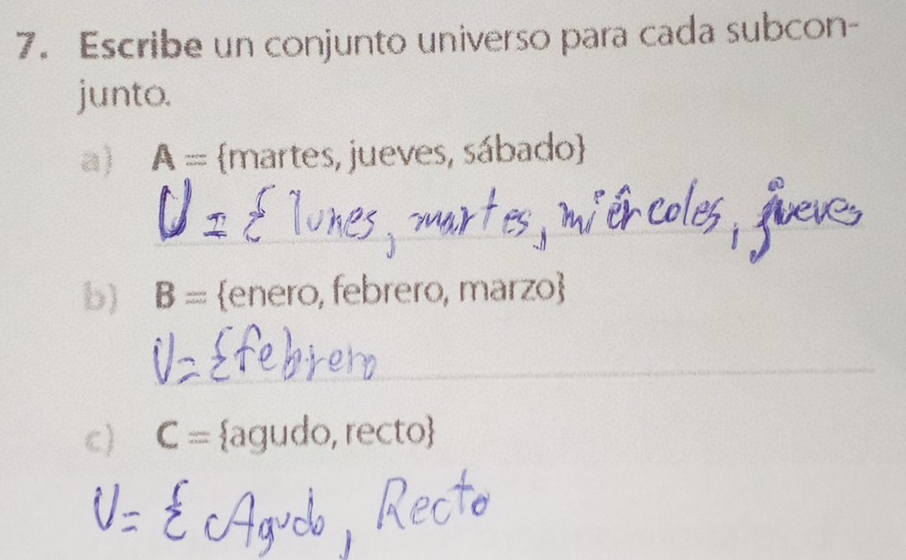 7. Escribe un conjunto universo para cada subcon-
junto.
a) A = {martes, jueves, sábado}
U = { lunes, martes, miércoles, jueves
b) B = {enero, febrero, marzo}
U = {febrero
c) C = {agudo, recto}
U = { Agudo, Recto